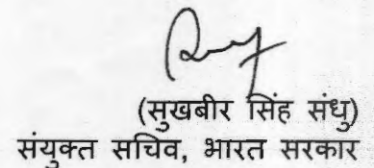 (सुखबीर सिंह संधु)
संयुक्त सचिव, भारत सरकार